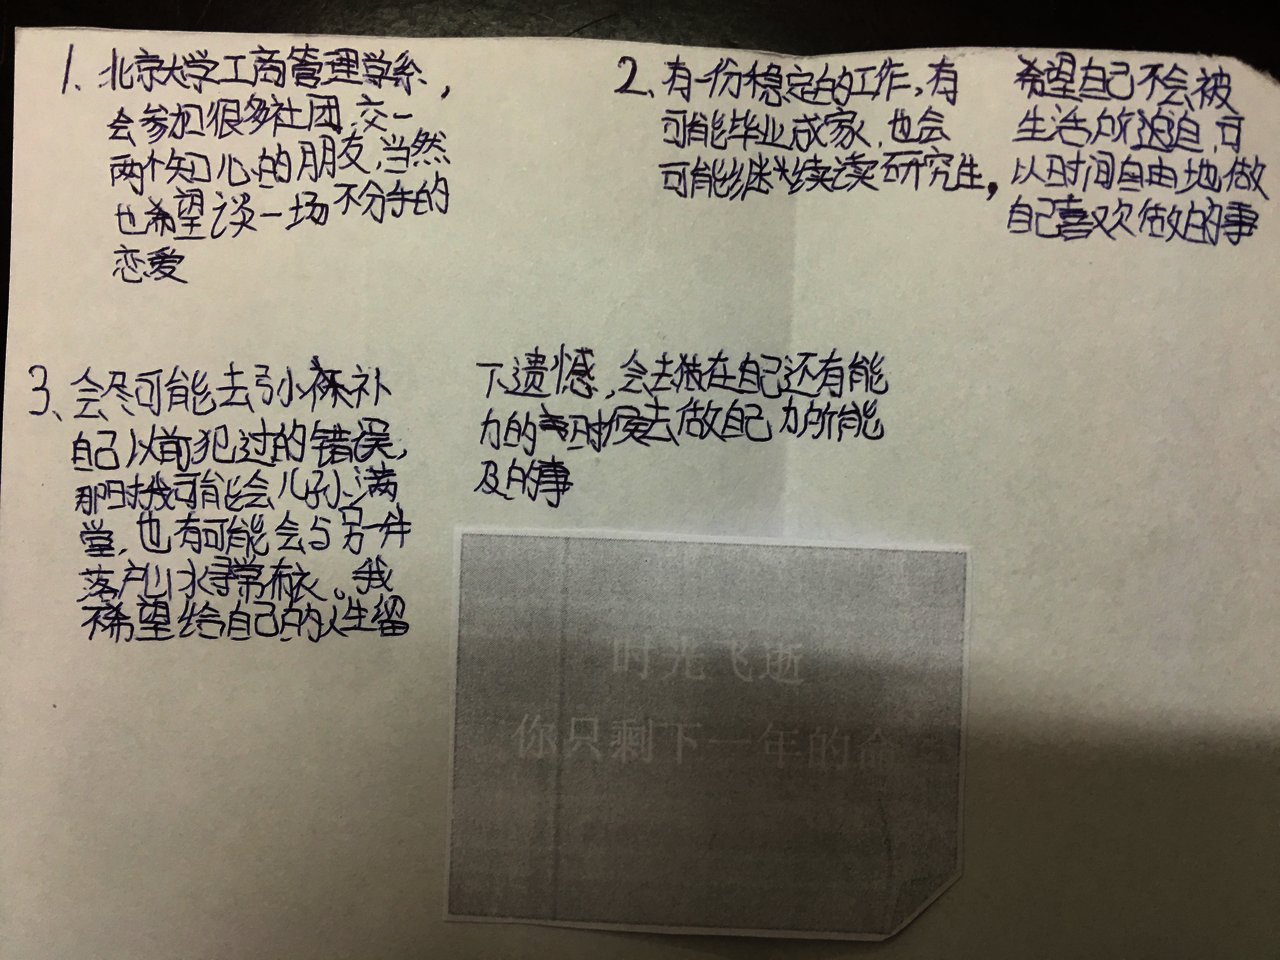 1. 北京大学工商管理学系，
会参加很多社团，交一
两个知心的朋友，当然
也希望谈一场不分手的
恋爱
2、有一份稳定的工作，有
可能毕业成家，也会
可能继续读研究生，
希望自己不会被
生活所迫，可
以时间自由地做
自己喜欢做的事
3、会尽可能去弥补
自己以前犯过的错误，
那时我可能会儿孙满
堂，也有可能会与另一半
落户山水寻常布衣。我
希望给自己的人生留
下遗憾，会去做在自己还有能
力的时候去做自己力所能
及的事
时光飞逝
你只剩下一年的命